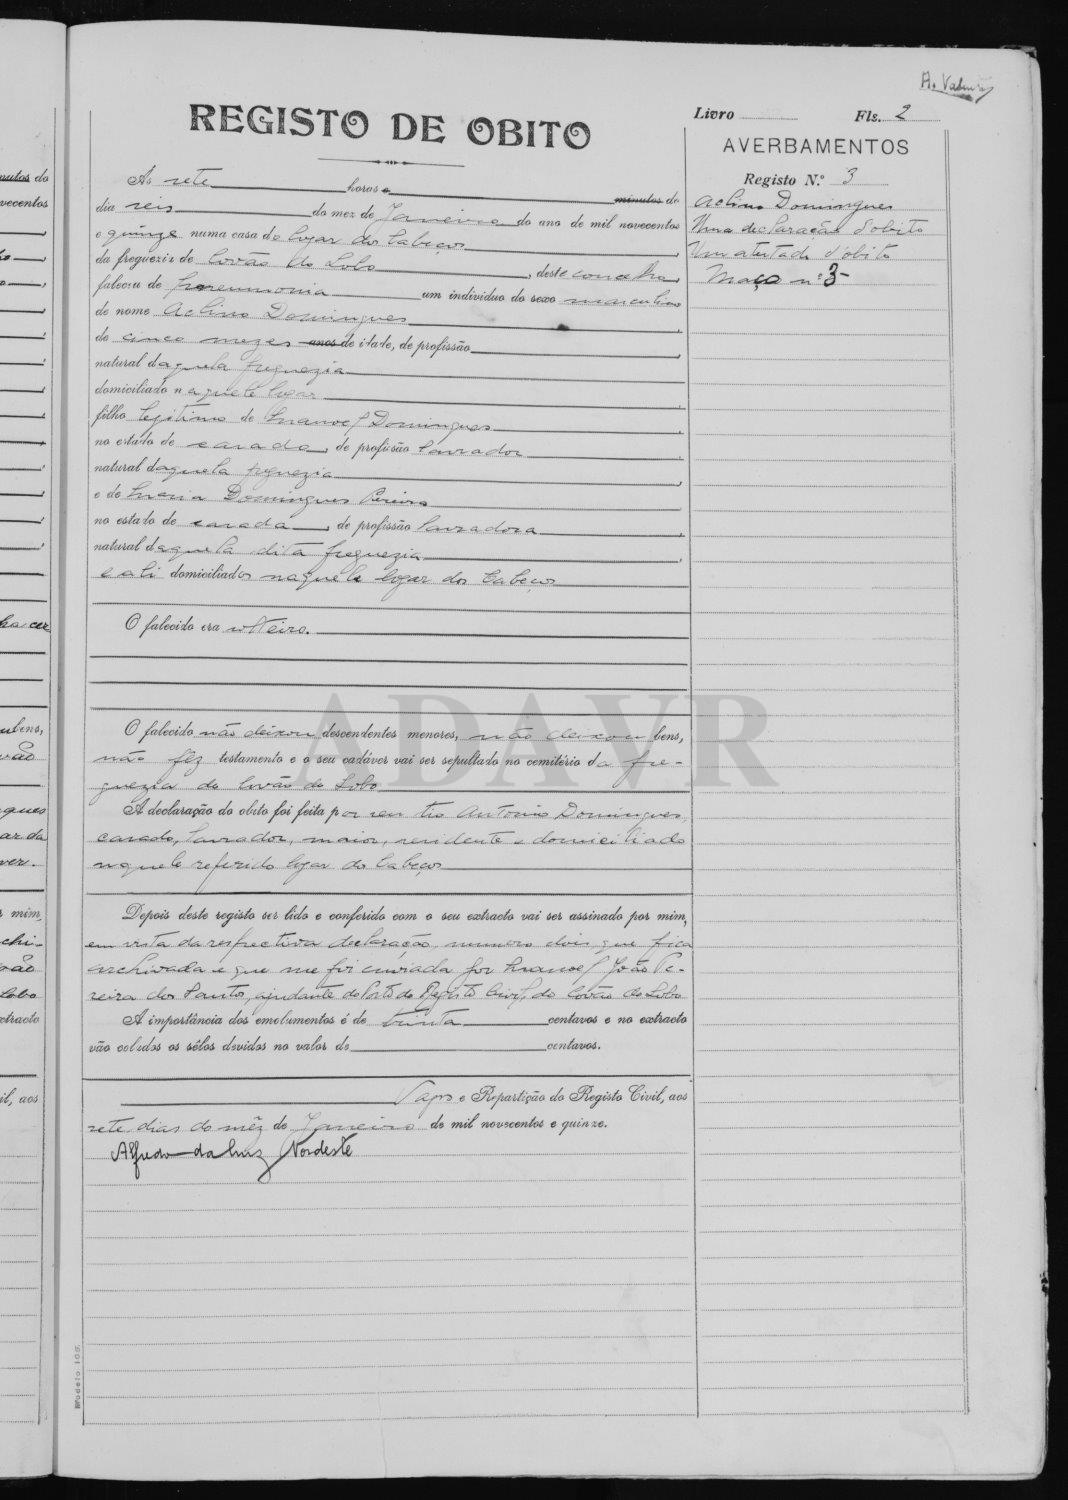 A. Valente
Livro Fls. 2
REGISTO DE OBITO
AVERBAMENTOS
Registo N.º 3
Ás sete horas e minutos do
dia seis do mez de Janeiro do ano de mil novecentos
e quinze numa casa do logar dos Cabeços
da freguezia de Covão do Lobo, deste concelho,
faleceu de pneumonia um individuo do sexo masculino
de nome Aclino Domingues,
de cinco mezes anos de idade, de profissão
natural daquela freguezia
domiciliado naquele logar
filho legitimo de Manoel Domingues
no estado de casado, de profissão lavrador
natural daquela freguezia
e de Maria Domingues Pereira
no estado de casada, de profissão lavradora
natural daquela dita freguezia
e ali domiciliados naquele logar dos Cabeços
O falecido era solteiro.
O falecido não deixou descendentes menores, não deixou bens,
não fez testamento e o seu cadáver vai ser sepultado no cemitério da fre-
guezia de Covão do Lobo
A declaração do obito foi feita por seu tio Antonio Domingues,
casado, lavrador, maior, residente e domiciliado
naquele referido logar dos Cabeços
Depois deste registo ser lido e conferido com o seu extracto vai ser assinado por mim,
em vista da respectiva declaração, numero dois, que fica
archivada e que me foi enviada por Manoel João Pe-
reira dos Santos, ajudante do Posto do Registo Civil, do Covão do Lobo
A importância dos emolumentos é de trinta centavos e no extracto
vão colados os sêlos devidos no valor de centavos.
Vagos e Repartição do Registo Civil, aos
sete dias do mêz de Janeiro de mil novecentos e quinze.
Alfredo da Luz Nordeste
Aclino Domingues
Uma declaração d'obito
Um atestado d'óbito
Maço nº 3-
ADAVR
Modelo 105.